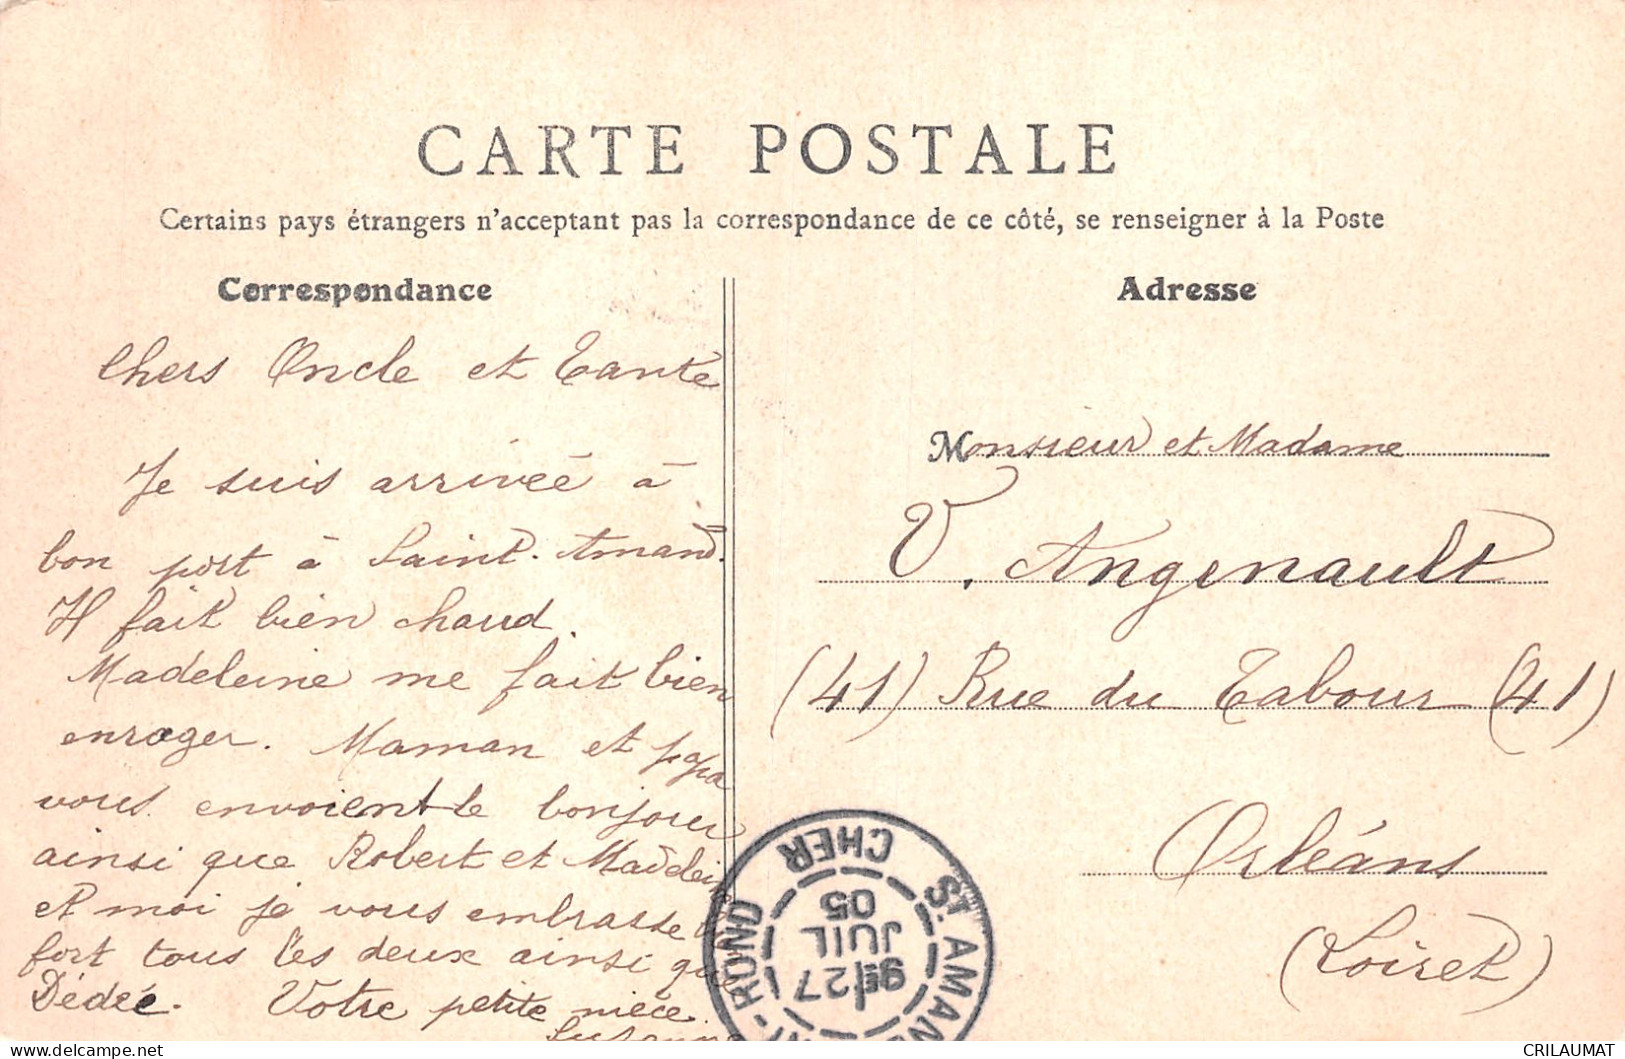 CARTE POSTALE
Certains pays étrangers n'acceptant pas la correspondance de ce côté, se renseigner à la Poste
Correspondance
Adresse
Chers Oncle et Tante
Je suis arrivée à
bon port à Saint-Amand.
Il fait bien chaud.
Madeleine me fait bien
enrager. Maman et papa
vous envoient le bonjour
ainsi que Robert et Madeleine
et moi je vous embrasse
fort tous les deux ainsi que
Dédée. Votre petite nièce.
Suzanne
Monsieur et Madame
V. Angenault
(41) Rue du Tabour (41)
Orléans
(Loiret)
CHER
ST AMAND
MONT-ROND
9E
27
JUIL
05
CRILAUMAT